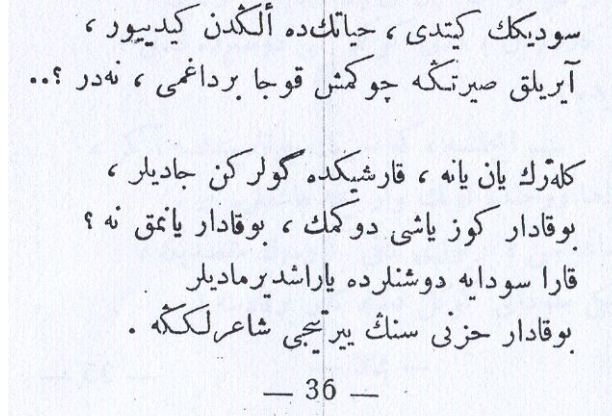 سودیکك کیتدی ، حیاتك‌ده ألكدن کیدییور ،
آیریلق صیرتکه چوکمش قوجا برداغمی ، نه‌در ؟..
کله‌رك یان یانه ، قارشیکده گولرکن جادیلر ،
بوقادار کوز یاشی دوکمك ، بوقادار یانمق نه ؟
قارا سودایه دوشنلرده یاراشدیرمادیلر
بوقادار حزنی سنك ییرتیجی شاعرلککه .
— 36 —